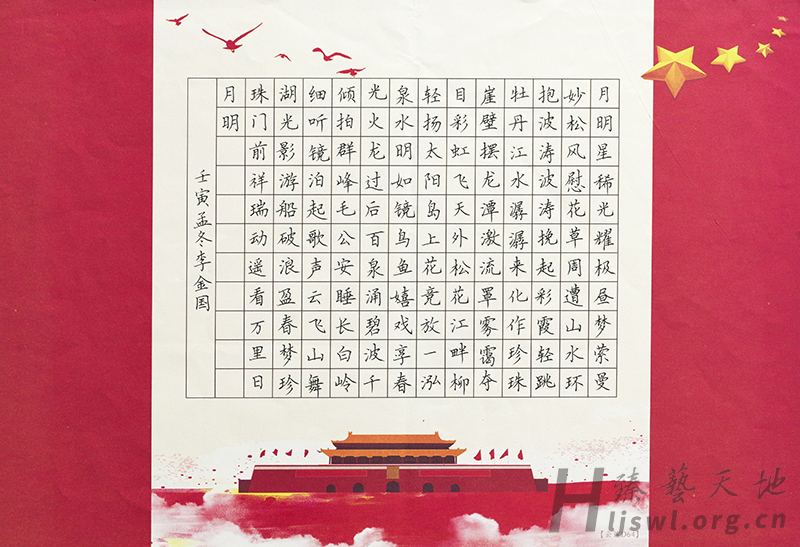 月明星稀光耀极昼梦萦曼
妙松风慰花草周遭山水环
抱波涛波涛挽起彩霞轻跳
牡丹江水潺潺来化作珍珠
崖壁摆龙潭激流罩雾霭夺
目彩虹飞天外松花江畔柳
轻扬太阳岛上花竞放一泓
泉水明如镜鸟鱼嬉戏享春
光火龙过后百泉涌碧波千
倾拍群峰毛公安睡长白岭
细听镜泊起歌声云飞山舞
湖光影游船破浪盈春梦珍
珠门前祥瑞动遥看万里日
月明
壬寅孟冬李金国
臻艺天地
Hljswl.org.cn